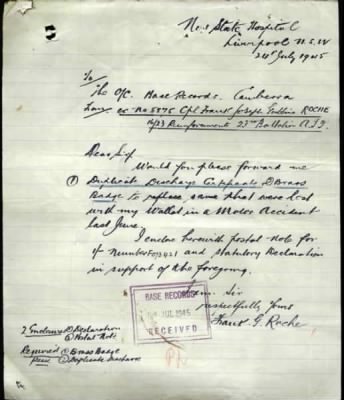 No. 1 State Hospital
Liverpool N.S.W
24th July 1945
To
The O/C. Base Records. Canberra
From ex No 5875 Cpl Frant Joseph ROCHE
/23 Reinforcements 23rd Battalion A.I.F.
Dear Sir
Would you please forward me
① Duplicate Discharge Certificate ② Brass
Badge to replace same that were lost
with my Wallet in a Motor Accident
last June.
I enclose herewith postal note for
and Statutory Declaration
in support of the foregoing.
I am Sir
respectfully yours
Frant G. Roche
BASE RECORDS
JUL 1945
RECEIVED
2 Enclosures ① Declaration
② Postal Note
Required ① Brass Badge
② Duplicate Discharge